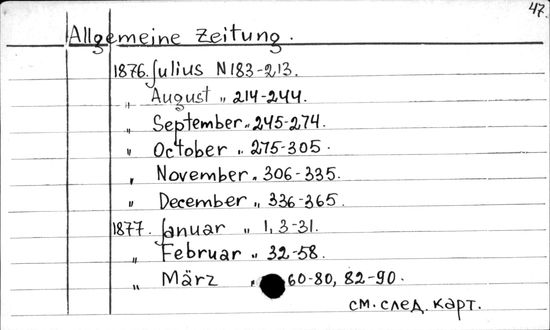 47.
Allgemeine Zeitung.
1876. Julius N 183-213.
„ August „ 214-244.
„ September „ 245-274.
„ October „ 275-305.
„ November „ 306-335.
„ December „ 336-365.
1877. Januar „ 1, 3-31.
„ Februar „ 32-58.
„ März „ 60-80, 82-90.
см. след. карт.